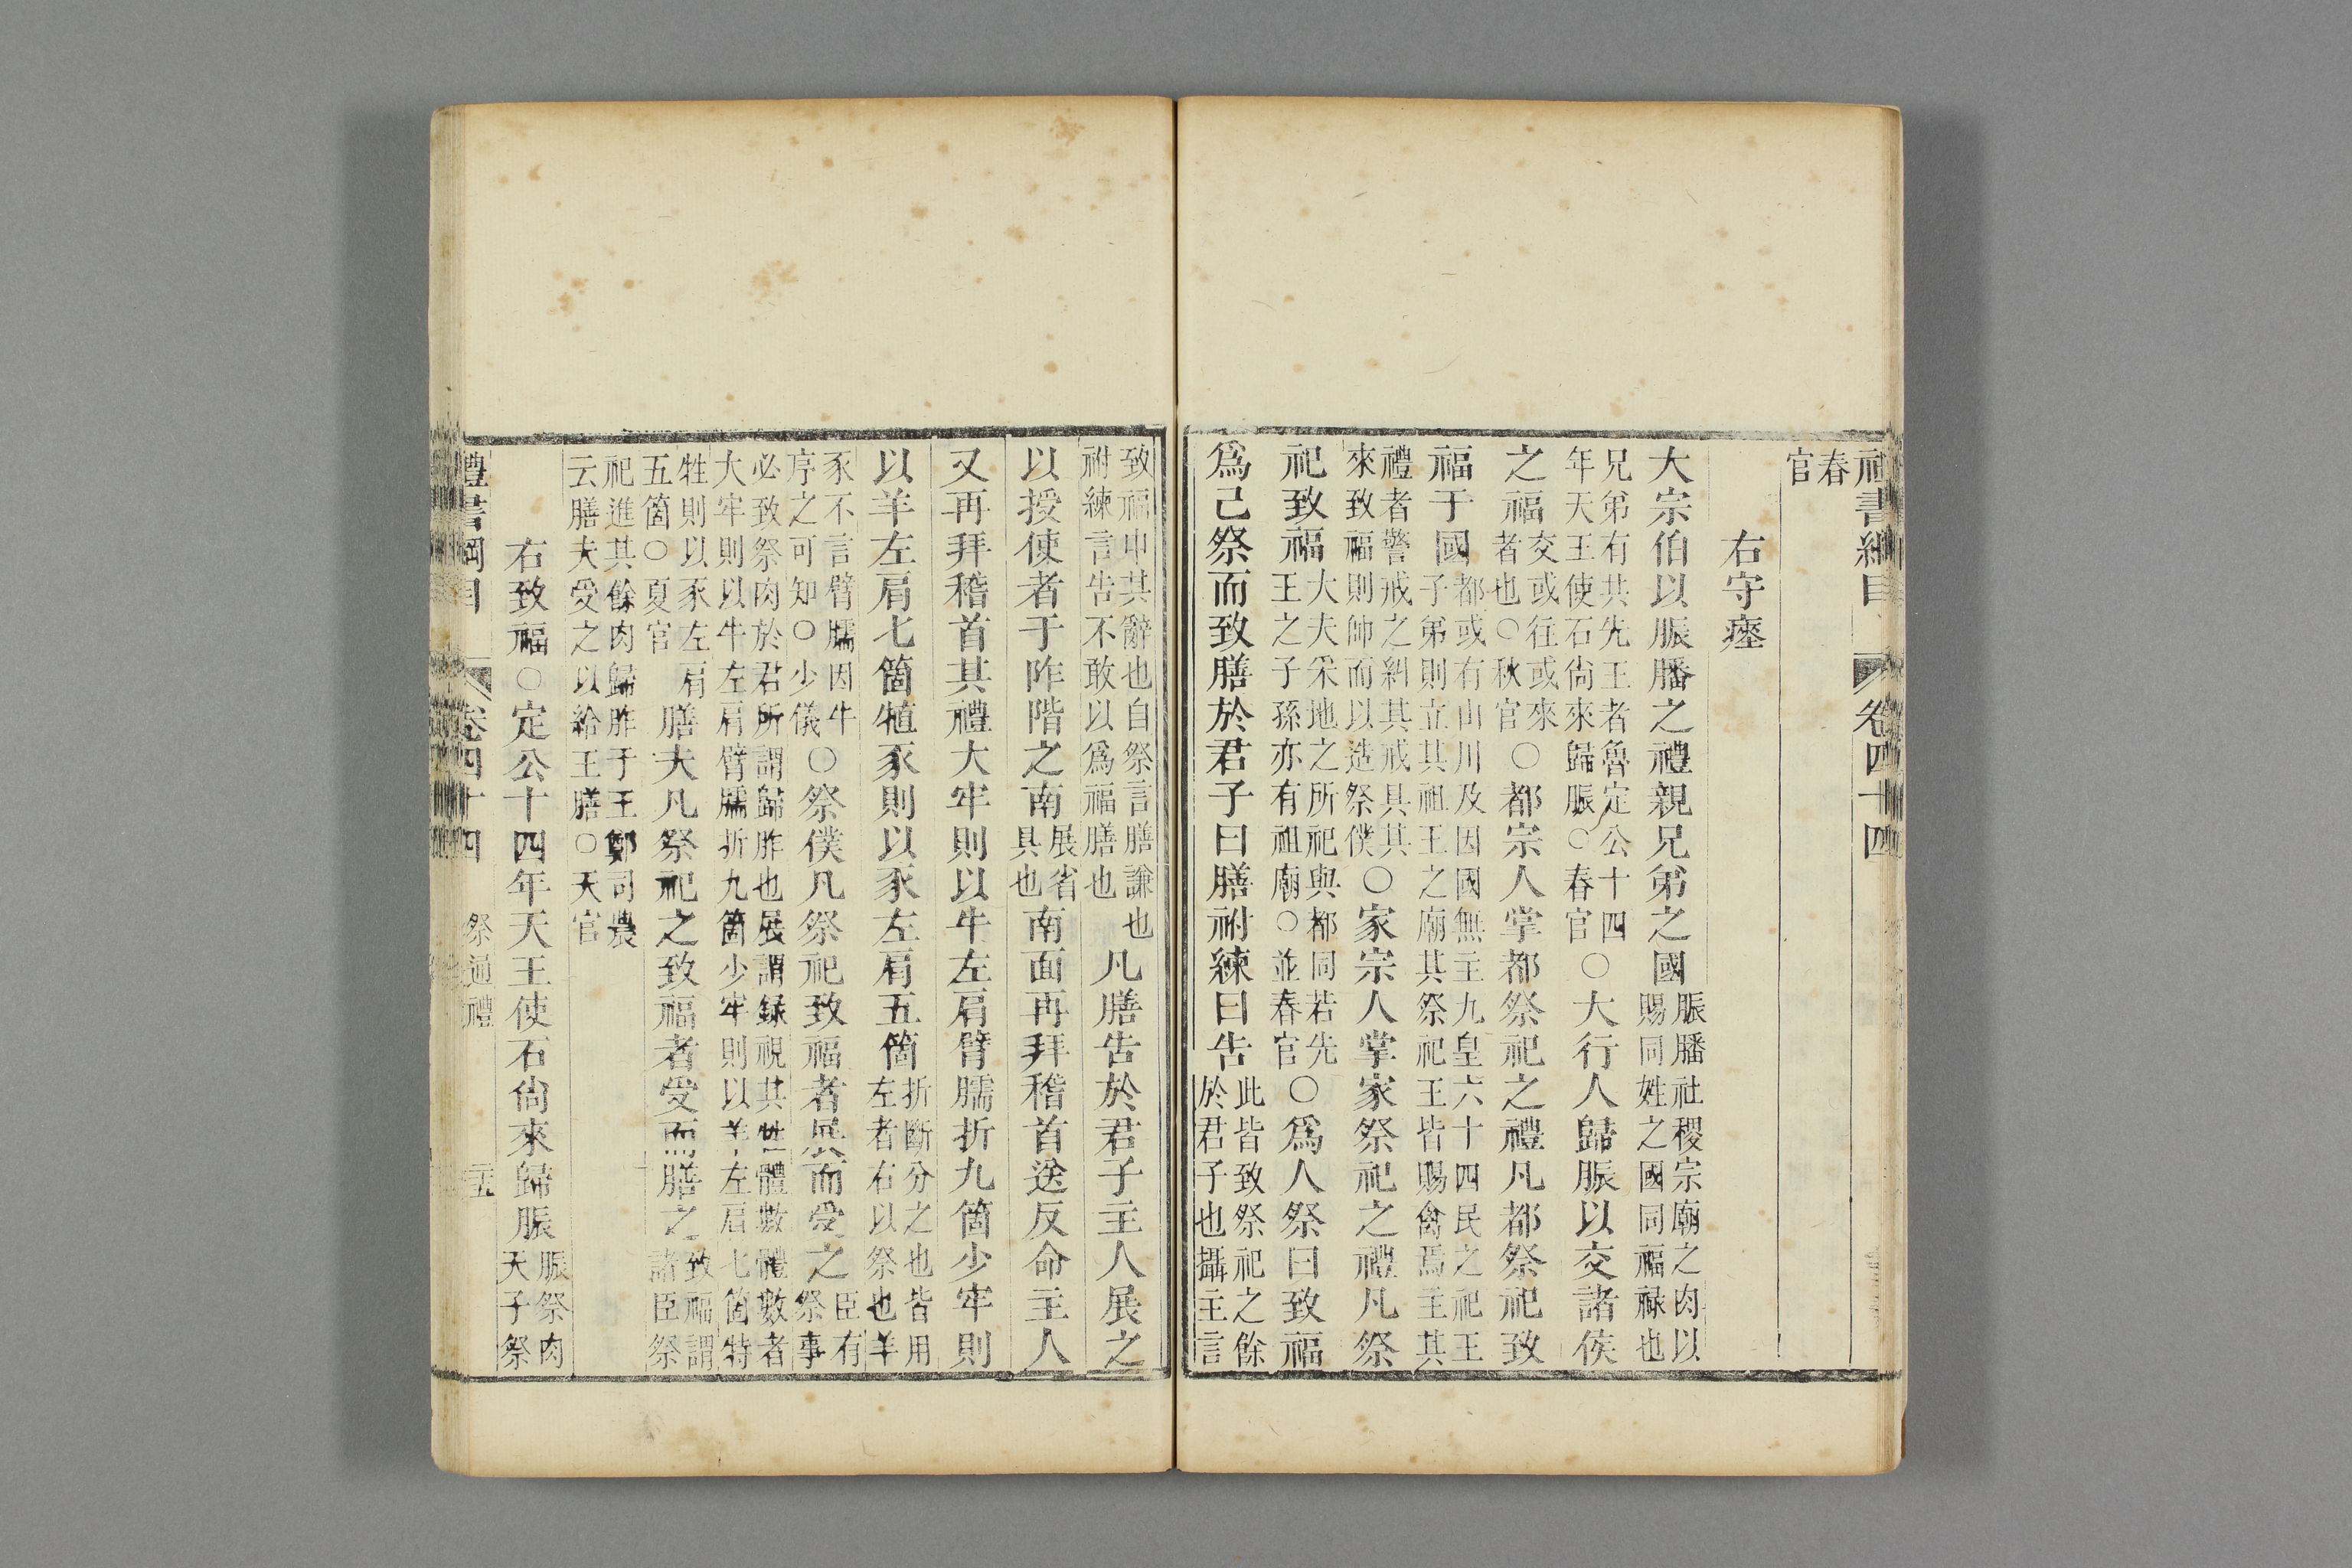 禮書綱目 卷四十四
春官
右守瘞
大宗伯以脤膰之禮親兄弟之國脤膰社稷宗廟之肉以賜同姓之國同福祿也
兄弟有共先王者魯定公十四年天王使石尙來歸脤○春官○大行人歸脤以交諸侯
之福交或往或來者也○秋官○都宗人掌都祭祀之禮凡都祭祀致
福于國都或有山川及因國無主九皇六十四民之祀王子弟則立其祖王之廟其祭祀王皆賜禽焉主其
禮者警戒之糾其戒具其來致福則帥而以造祭僕○家宗人掌家祭祀之禮凡祭
祀致福大夫采地之所祀與都同若先王之子孫亦有祖廟○並春官○爲人祭曰致福
爲己祭而致膳於君子曰膳祔練曰告此皆致祭祀之餘於君子也攝主言
致福申其辭也自祭言膳謙也祔練言告不敢以爲福膳也凡膳告於君子主人展之
以授使者于阼階之南展省具也南面再拜稽首送反命主人
又再拜稽首其禮大牢則以牛左肩臂臑折九箇少牢則
以羊左肩七箇犆豕則以豕左肩五箇折斷分之也皆用左者右以祭也羊
豕不言臂臑因牛序之可知○少儀○祭僕凡祭祀致福者展而受之臣有祭事
必致祭肉於君所謂歸胙也展謂録視其牲體數體數者大牢則以牛左肩臂臑折九箇少牢則以羊左肩七箇特
牲則以豕左肩五箇○夏官膳夫凡祭祀之致福者受而膳之致福謂諸臣祭
祀進其餘肉歸胙于王鄭司農云膳夫受之以給王膳○天官
右致福○定公十四年天王使石尙來歸脤脤祭肉天子祭
禮書綱目 卷四十四 祭通禮 二五